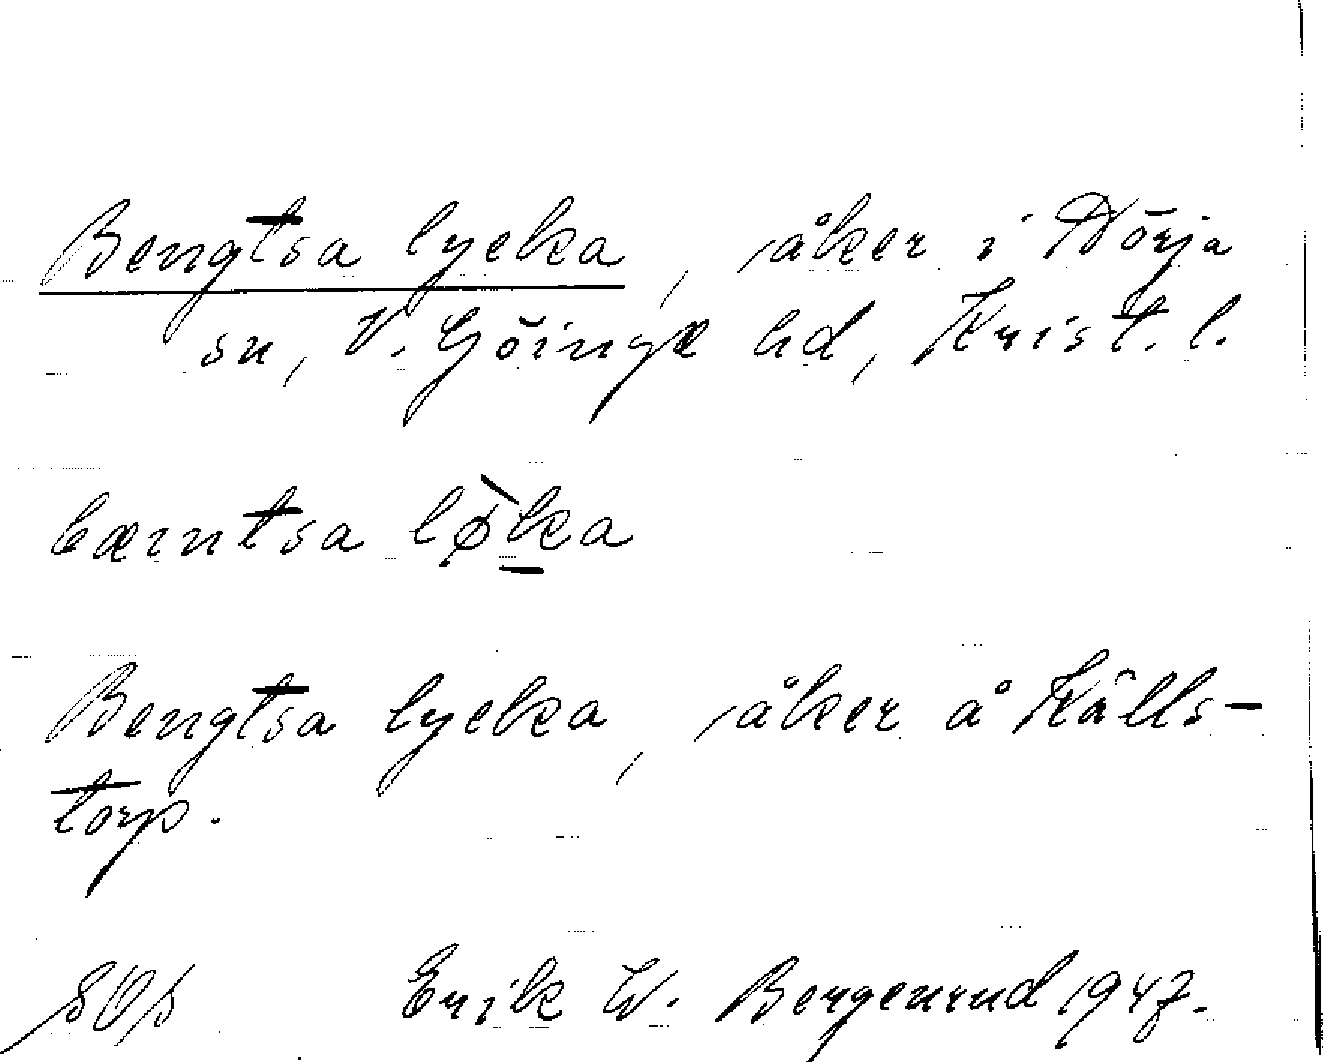 Bengtsa lycka, åker i Nörja
sn, V. Göinge hd, Krist. l.
bæintsa lø̀ka
Bengtsa lycka, åker å Källs-
torp.
Erik W. Bergenrud 1947.